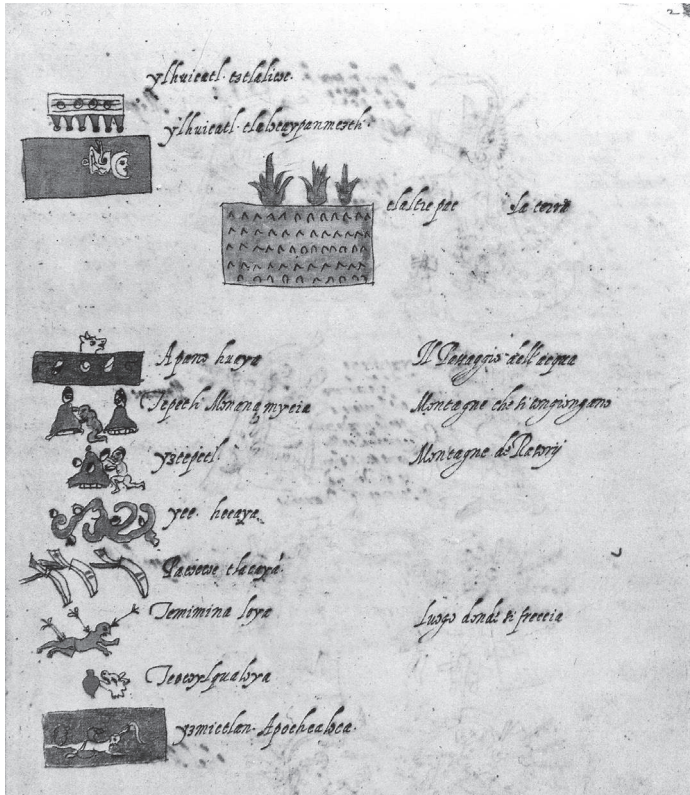 2
ylhuicatl
ylhuicatl tlalocaypanmeztli
tlalticpac La terra
Apano huaya Il Passaggio dell'acqua
Tepetli Monanamycia Montagne che si congiongano
yztepetl Montagne de Rasorij
yee hecaya
Pacoecoe tlacaya
Temimina loya Luogo donde si freccia
Teocoylqualoya
yzmictlan Apochcaloca